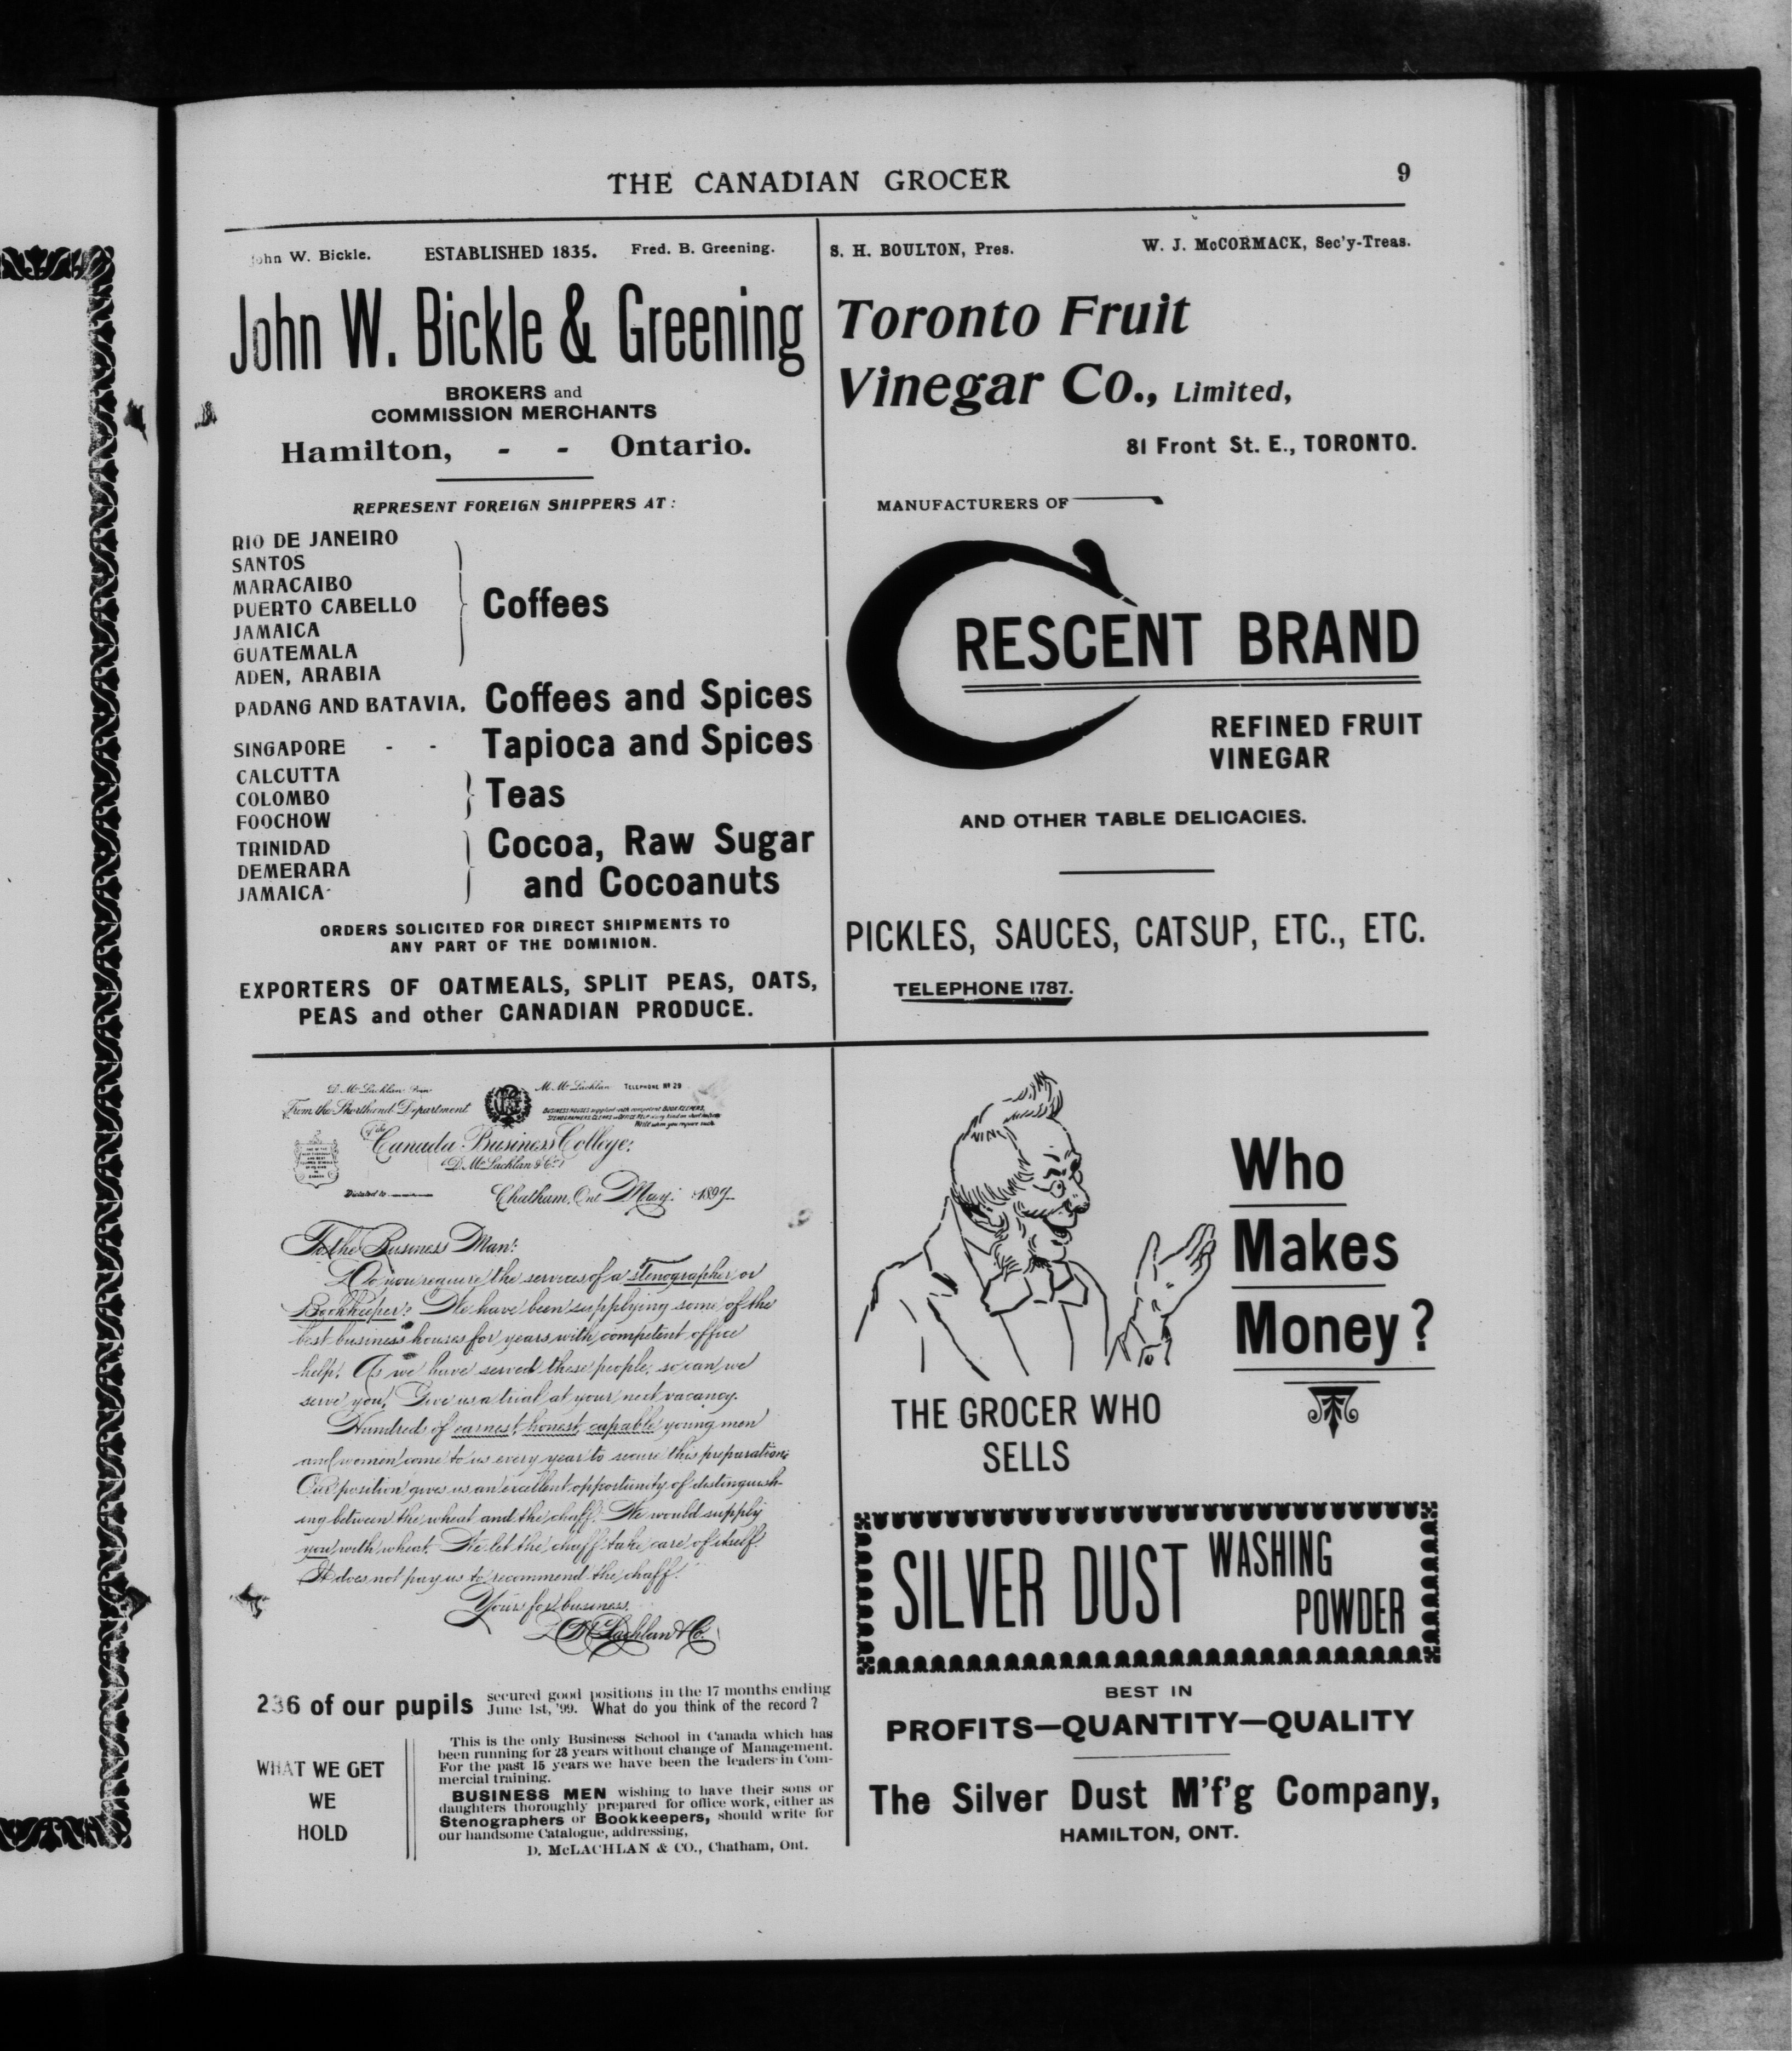 THE CANADIAN GROCER
9
John W. Bickle.
ESTABLISHED 1835.
Fred. B. Greening.
John W. Bickle & Greening
BROKERS and
COMMISSION MERCHANTS
Hamilton, - - Ontario.
REPRESENT FOREIGN SHIPPERS AT :
RIO DE JANEIRO
SANTOS
MARACAIBO
PUERTO CABELLO
JAMAICA
GUATEMALA
ADEN, ARABIA
Coffees
PADANG AND BATAVIA, Coffees and Spices
SINGAPORE - - Tapioca and Spices
CALCUTTA
COLOMBO
FOOCHOW
Teas
TRINIDAD
DEMERARA
JAMAICA
Cocoa, Raw Sugar
and Cocoanuts
ORDERS SOLICITED FOR DIRECT SHIPMENTS TO
ANY PART OF THE DOMINION.
EXPORTERS OF OATMEALS, SPLIT PEAS, OATS,
PEAS and other CANADIAN PRODUCE.
S. H. BOULTON, Pres.
W. J. McCORMACK, Sec'y-Treas.
Toronto Fruit
Vinegar Co., Limited,
81 Front St. E., TORONTO.
MANUFACTURERS OF
CRESCENT BRAND
REFINED FRUIT
VINEGAR
AND OTHER TABLE DELICACIES.
PICKLES, SAUCES, CATSUP, ETC., ETC.
TELEPHONE 1787.
D. McLachlan
M. McLachlan
TELEPHONE No 29
From the Shorthand Department
BUSINESS HOUSES supplied with competent BOOK KEEPERS,
Write when you require such
of the
Canada Business College.
D. McLachlan & Co.
Dictated to
Chatham, Ont. May 1899
To the Business Man:
Do you require the services of a stenographer or
Bookkeeper? We have been supplying some of the
best business houses for years with competent office
help. As we have served these people, so can we
serve you. Give us a trial at your next vacancy.
Hundreds of earnest, honest, capable young men
and women come to us every year to secure this preparation.
Our position gives us an excellent opportunity of distinguish-
ing between the wheat and the chaff. We would supply
you with wheat. We let the chaff take care of itself.
It does not pay us to recommend the chaff.
Yours for business,
D. McLachlan & Co.
236 of our pupils
secured good positions in the 17 months ending
June 1st, '99. What do you think of the record ?
WHAT WE GET
WE
HOLD
This is the only Business School in Canada which has
been running for 23 years without change of Management.
For the past 15 years we have been the leaders in Com-
mercial training.
BUSINESS MEN wishing to have their sons or
daughters thoroughly prepared for office work, either as
Stenographers or Bookkeepers, should write for
our handsome Catalogue, addressing,
D. McLACHLAN & CO., Chatham, Ont.
Who
Makes
Money?
THE GROCER WHO
SELLS
SILVER DUST WASHING
POWDER
BEST IN
PROFITS—QUANTITY—QUALITY
The Silver Dust M'f'g Company,
HAMILTON, ONT.